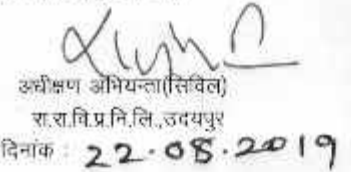 अधीक्षण अभियन्ता(सिविल)
रा.रा.वि.प्र.नि.लि.,उदयपुर
दिनांक : 22.08.2019